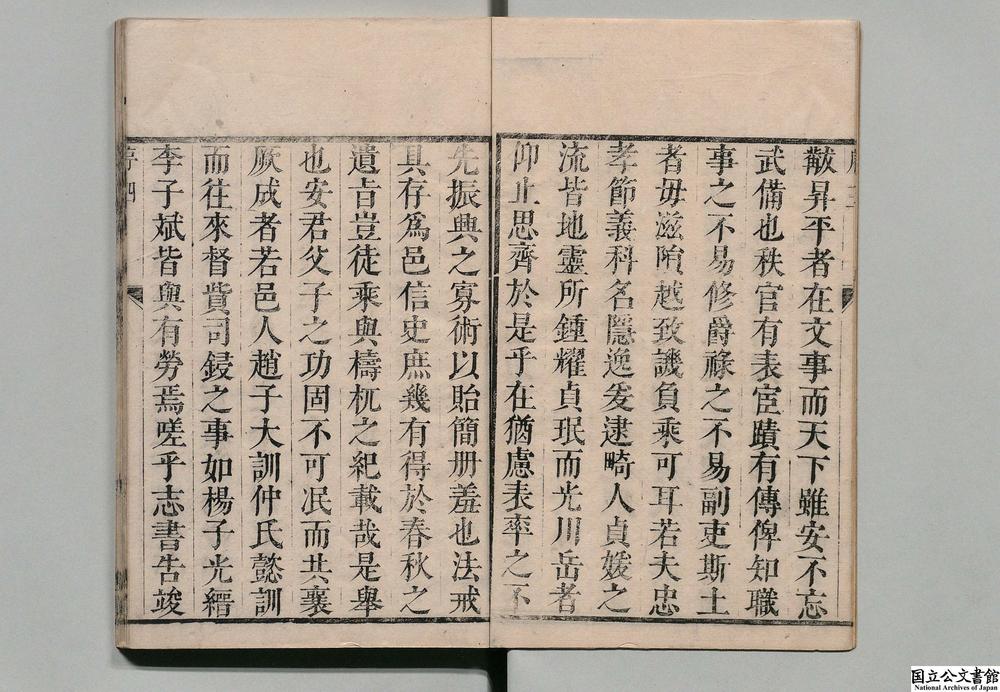 黻昇平者在文事而天下雖安不忘
武備也秩官有表宦蹟有傳俾知職
事之不易修爵祿之不易副吏斯土
者毋滋隕越致譏負乘可耳若夫忠
孝節義科名隱逸爰逮畸人貞媛之
流皆地靈所鍾耀貞珉而光川岳者
仰止思齊於是乎在猶慮表率之不
先振興之寡術以貽簡册羞也法戒
具存為邑信史庶幾有得於春秋之
遺旨豈徒乘與檮杌之紀載哉是舉
也安君父子之功固不可泯而共襄
厥成者若邑人趙子大訓仲氏懿訓
而往來督貲司鋟之事如楊子光縉
李子斌皆與有勞焉嗟乎志書告竣
序四
国立公文書館
National Archives of Japan